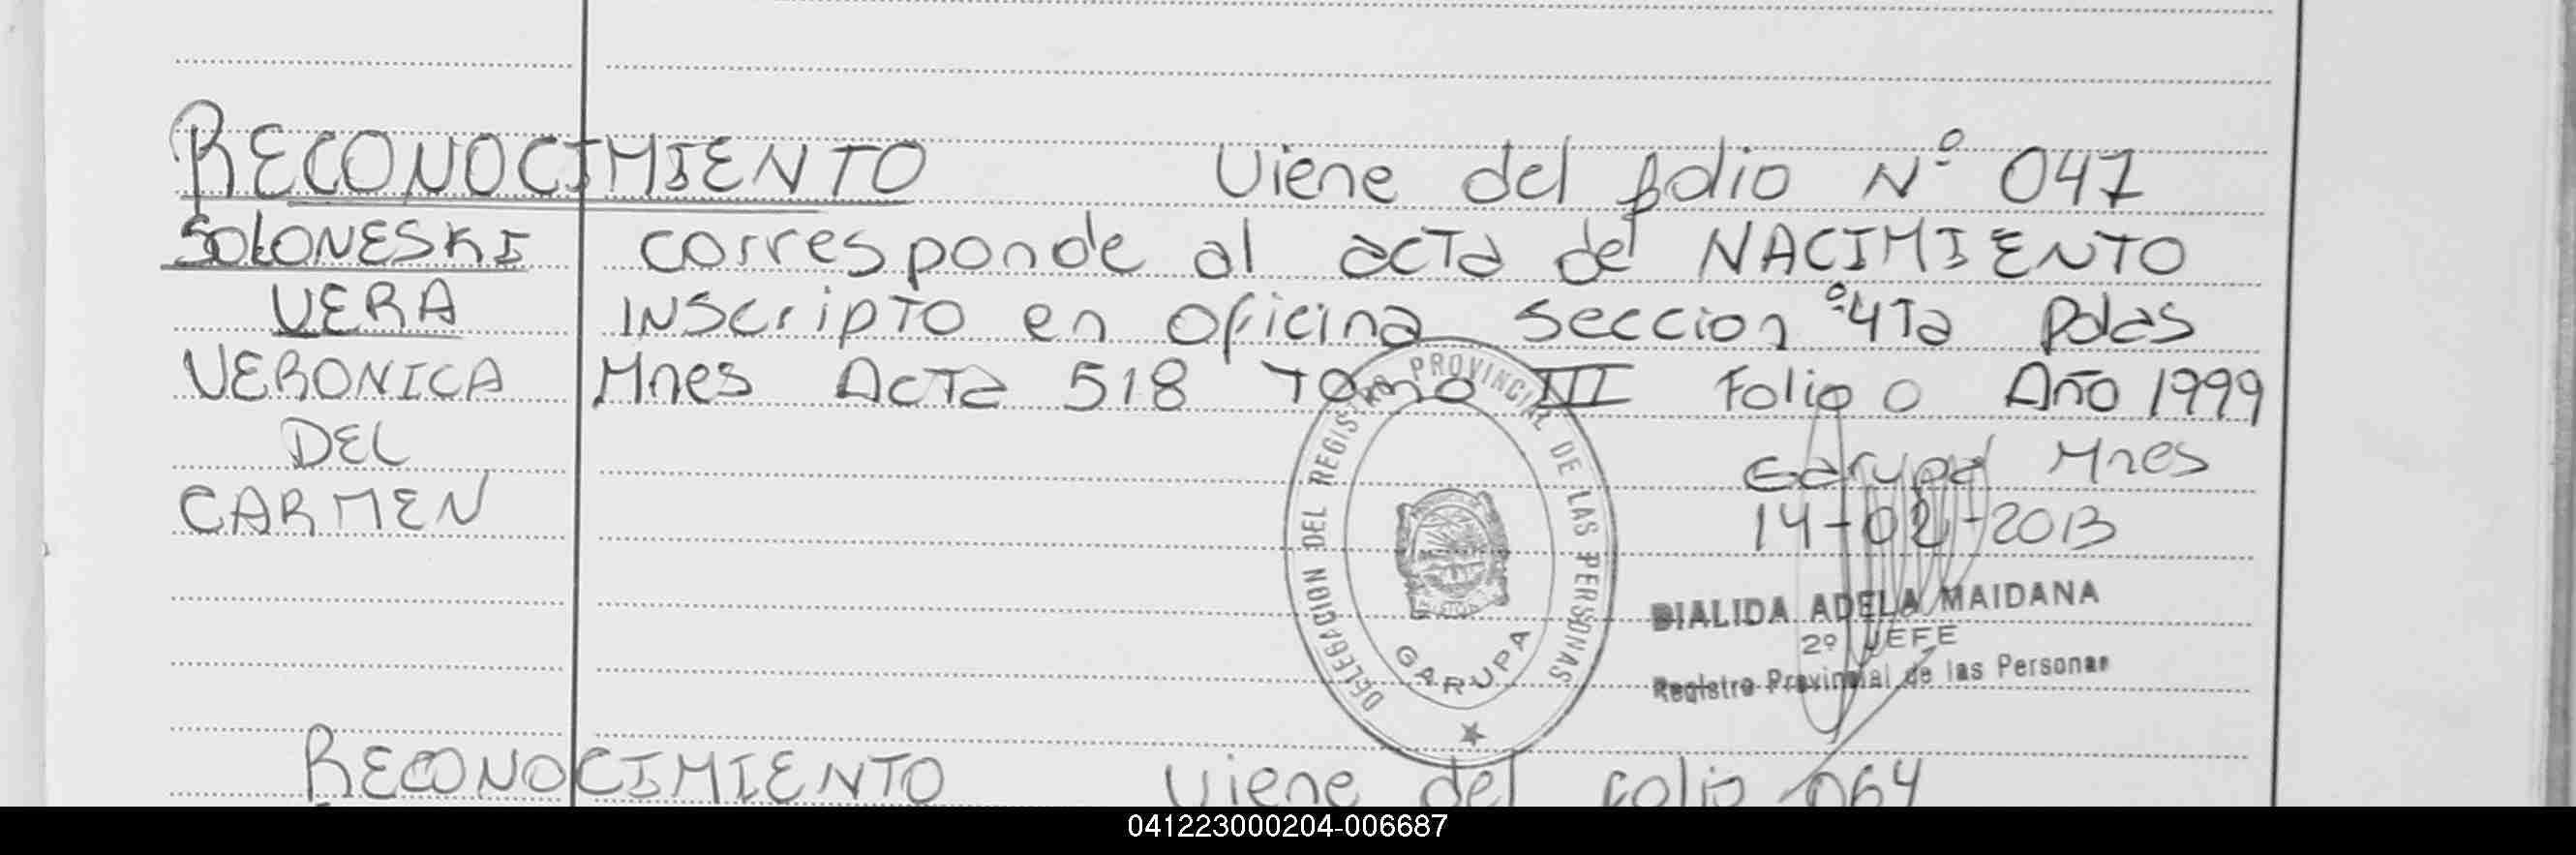 RECONOCIMIENTO Viene del folio Nº 047
SOLONESKI corresponde al acTa del NACIMIENTO
VERA INScripTO en oficina seccion º4Ta Pdas
VERONICA Mnes ActTa 518 Tomo III Folio 0 Año 1999
DEL Garupa Mnes
CARMEN 14-02-2013
DELEGACION DEL REGISTRO PROVINCIAL DE LAS PERSONAS
GARUPA
DIALIDA ADELA MAIDANA
2º JEFE
Registro Provincial de las Personas
RECONOCIMIENTO Viene del folio 064
041223000204-006687